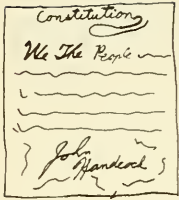 Constitution
We The People
John
Handcock